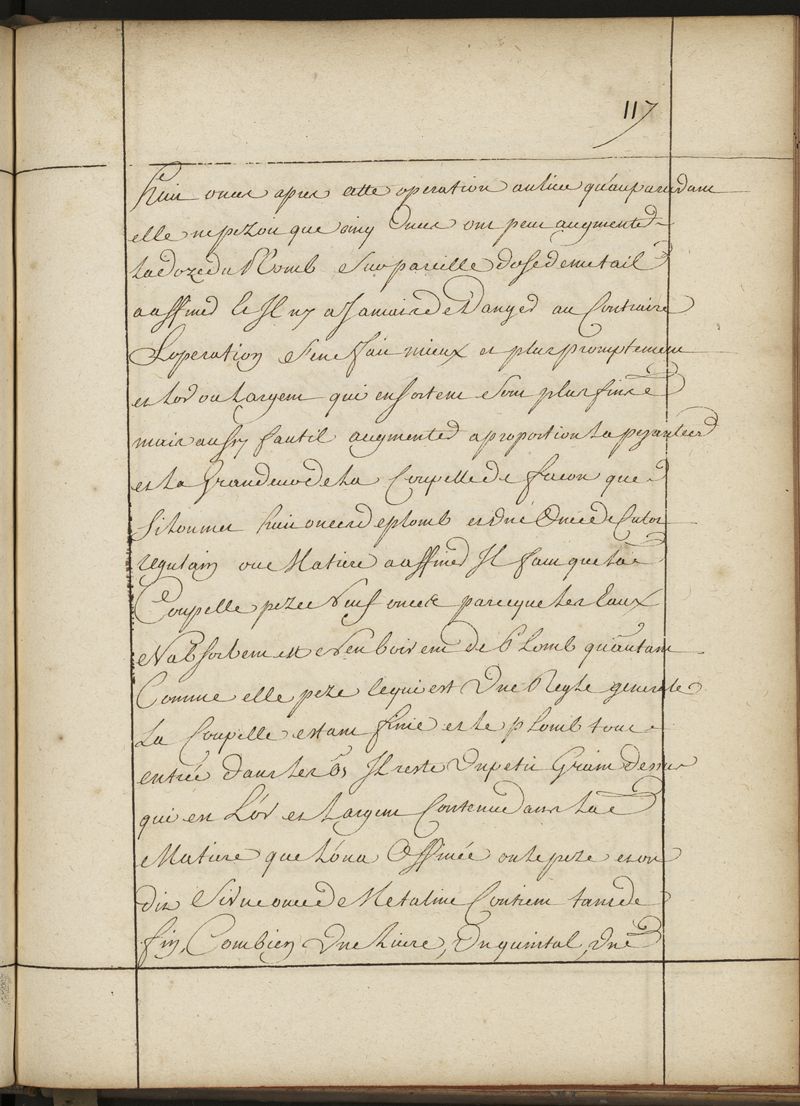 117
huit onces apres cette operation aulieu qu'auparavant
elle ne pezoit que cinq onces ont peut augmenter
la doze du Plomb sur pareille dose de metail
a affiner et Il ny a Jamais de danger au Contraire
L'operation s'en fait mieux et plus promptement
et l'or ou l'argent qui en sortent sont plus fins
mais aussy faut il augmenter a proportion la pezanteur
et la Grandeur de la Coupelle de facon que
si l'on met huit onces de plomb et une Once de
regulain ou Matiere a affiner Il faut que la
Coupelle peze neuf onces parceque les Eaux
N'absorbent et n'en boivent de Plomb qu'autant
Comme elle peze ce qui est une Regle generale
La Coupelle estant finie et le plomb tout
entrée dans les os Il reste un petit Grain dessus
qui est L'or et l'argent Contenu dans la
Matiere que l'on a Affinée on le peze et on
dit si une once de Metaline Contient tant de
fin, Combien une livre, un quintal, une